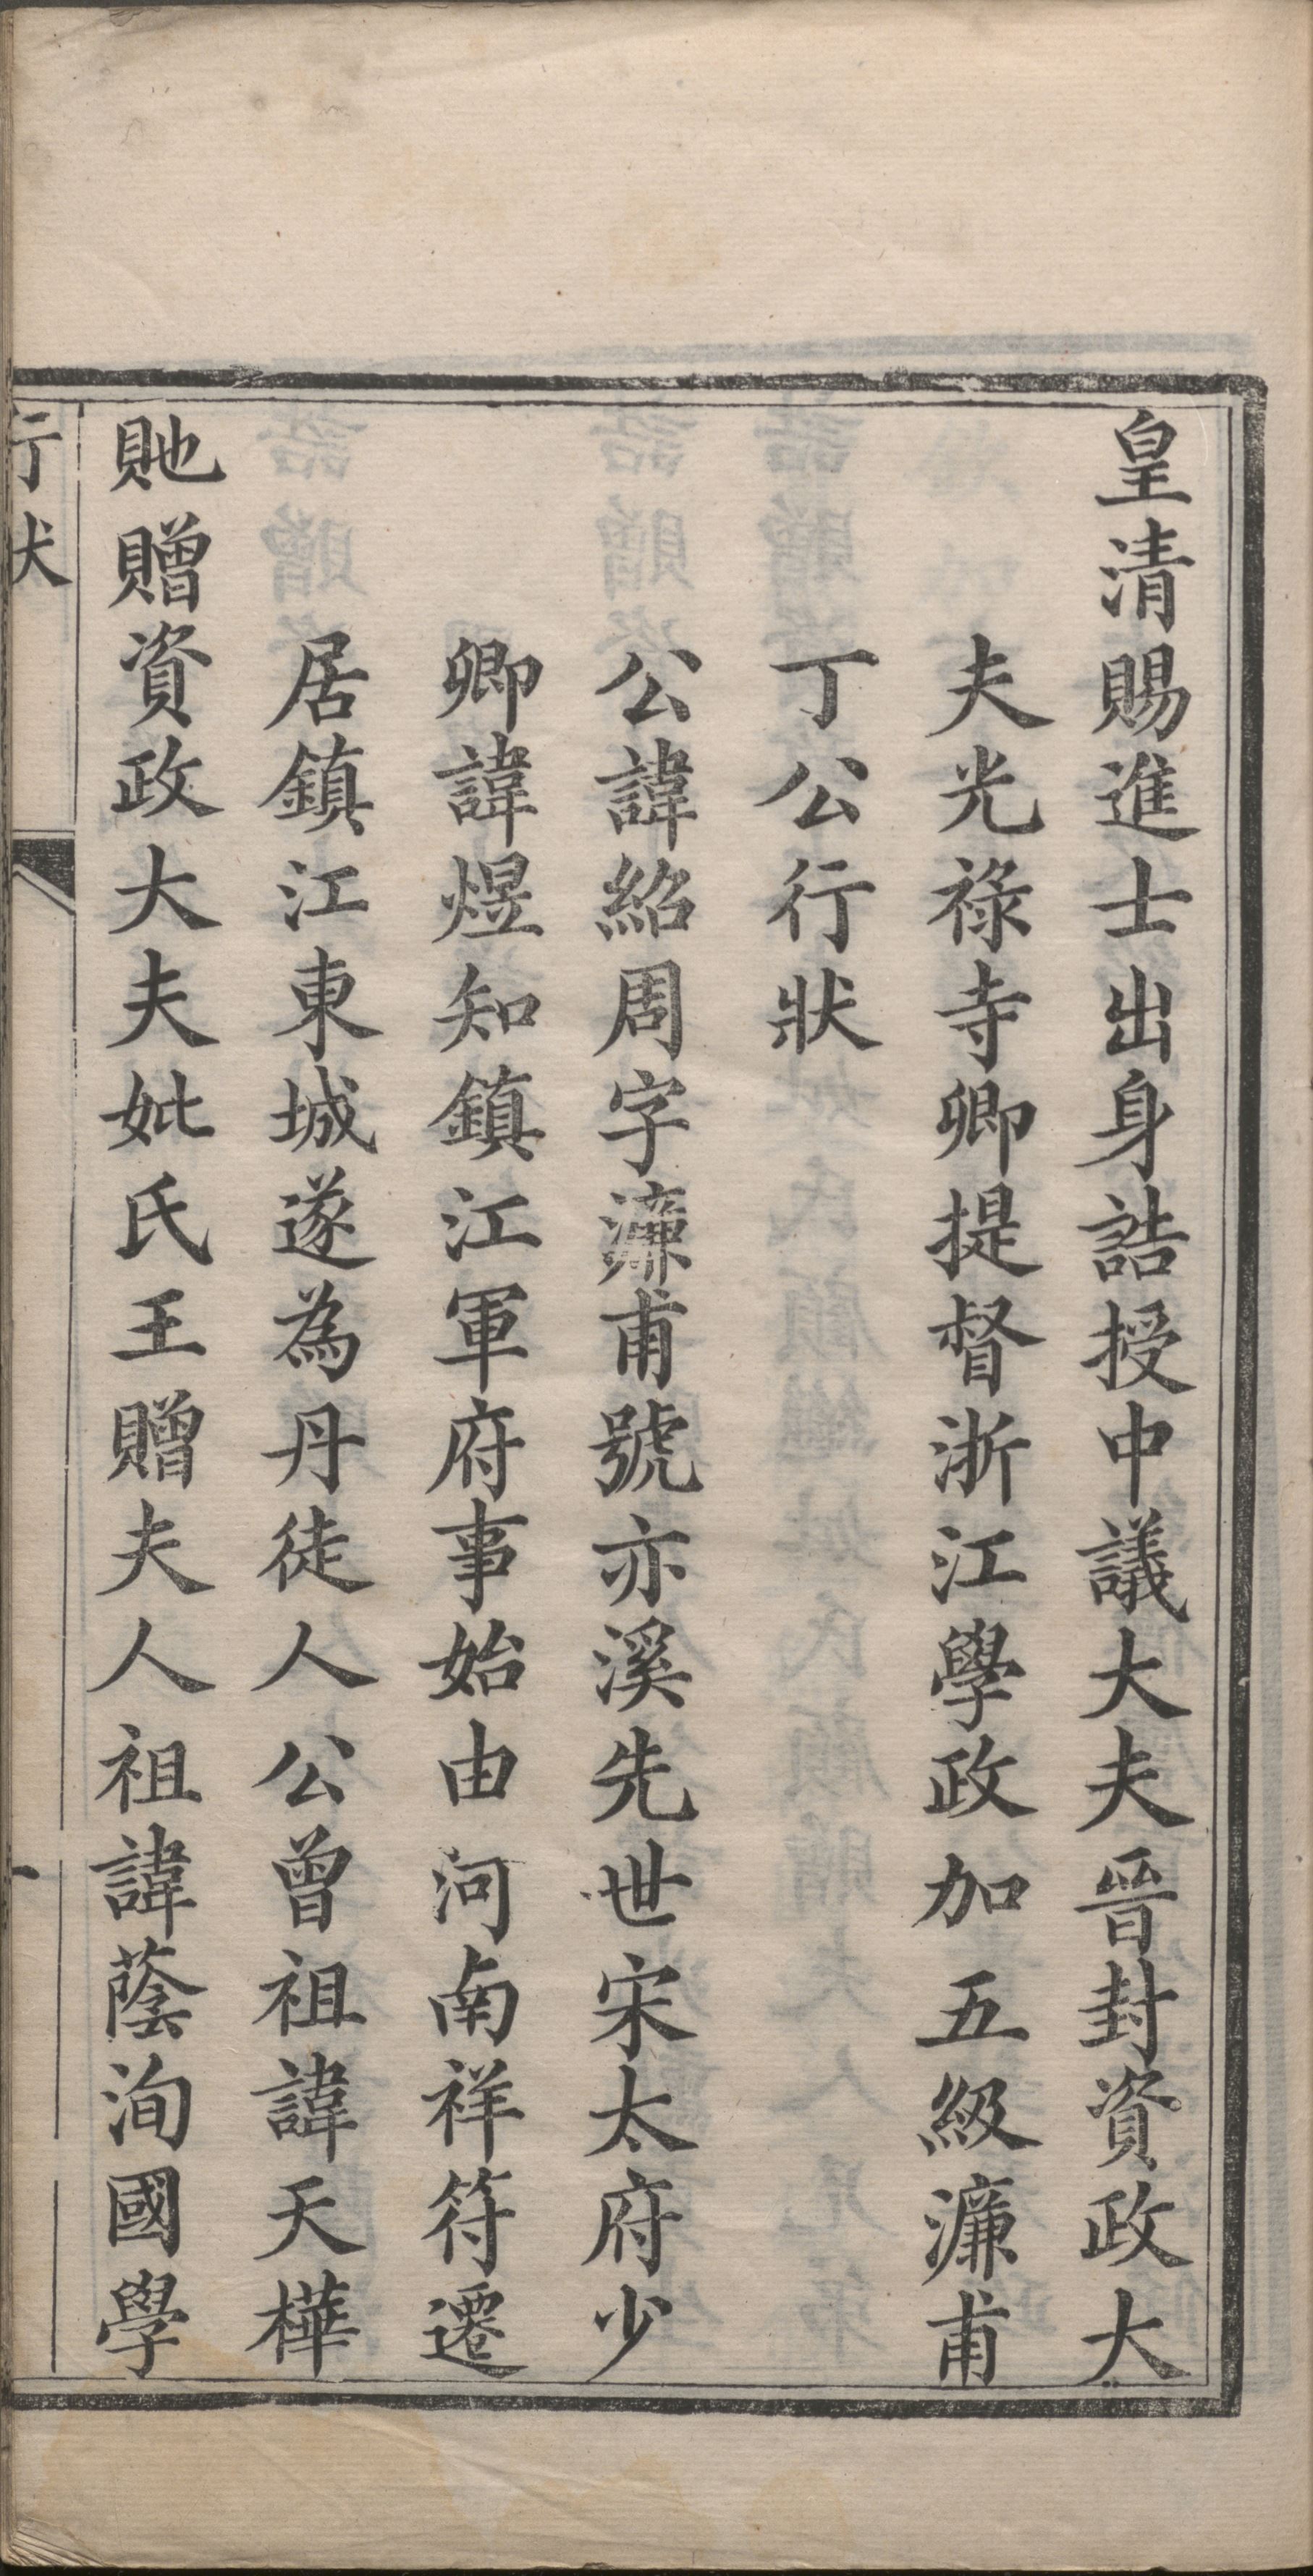 皇清賜進士出身誥授中議大夫晉封資政大
夫光祿寺卿提督浙江學政加五級濂甫
丁公行狀
公諱紹周字濂甫號亦溪先世宋太府少
卿諱煜知鎮江軍府事始由河南祥符遷
居鎮江東城遂為丹徒人公曾祖諱天樺
貤贈資政大夫妣氏王贈夫人祖諱蔭洵國學
行狀
一